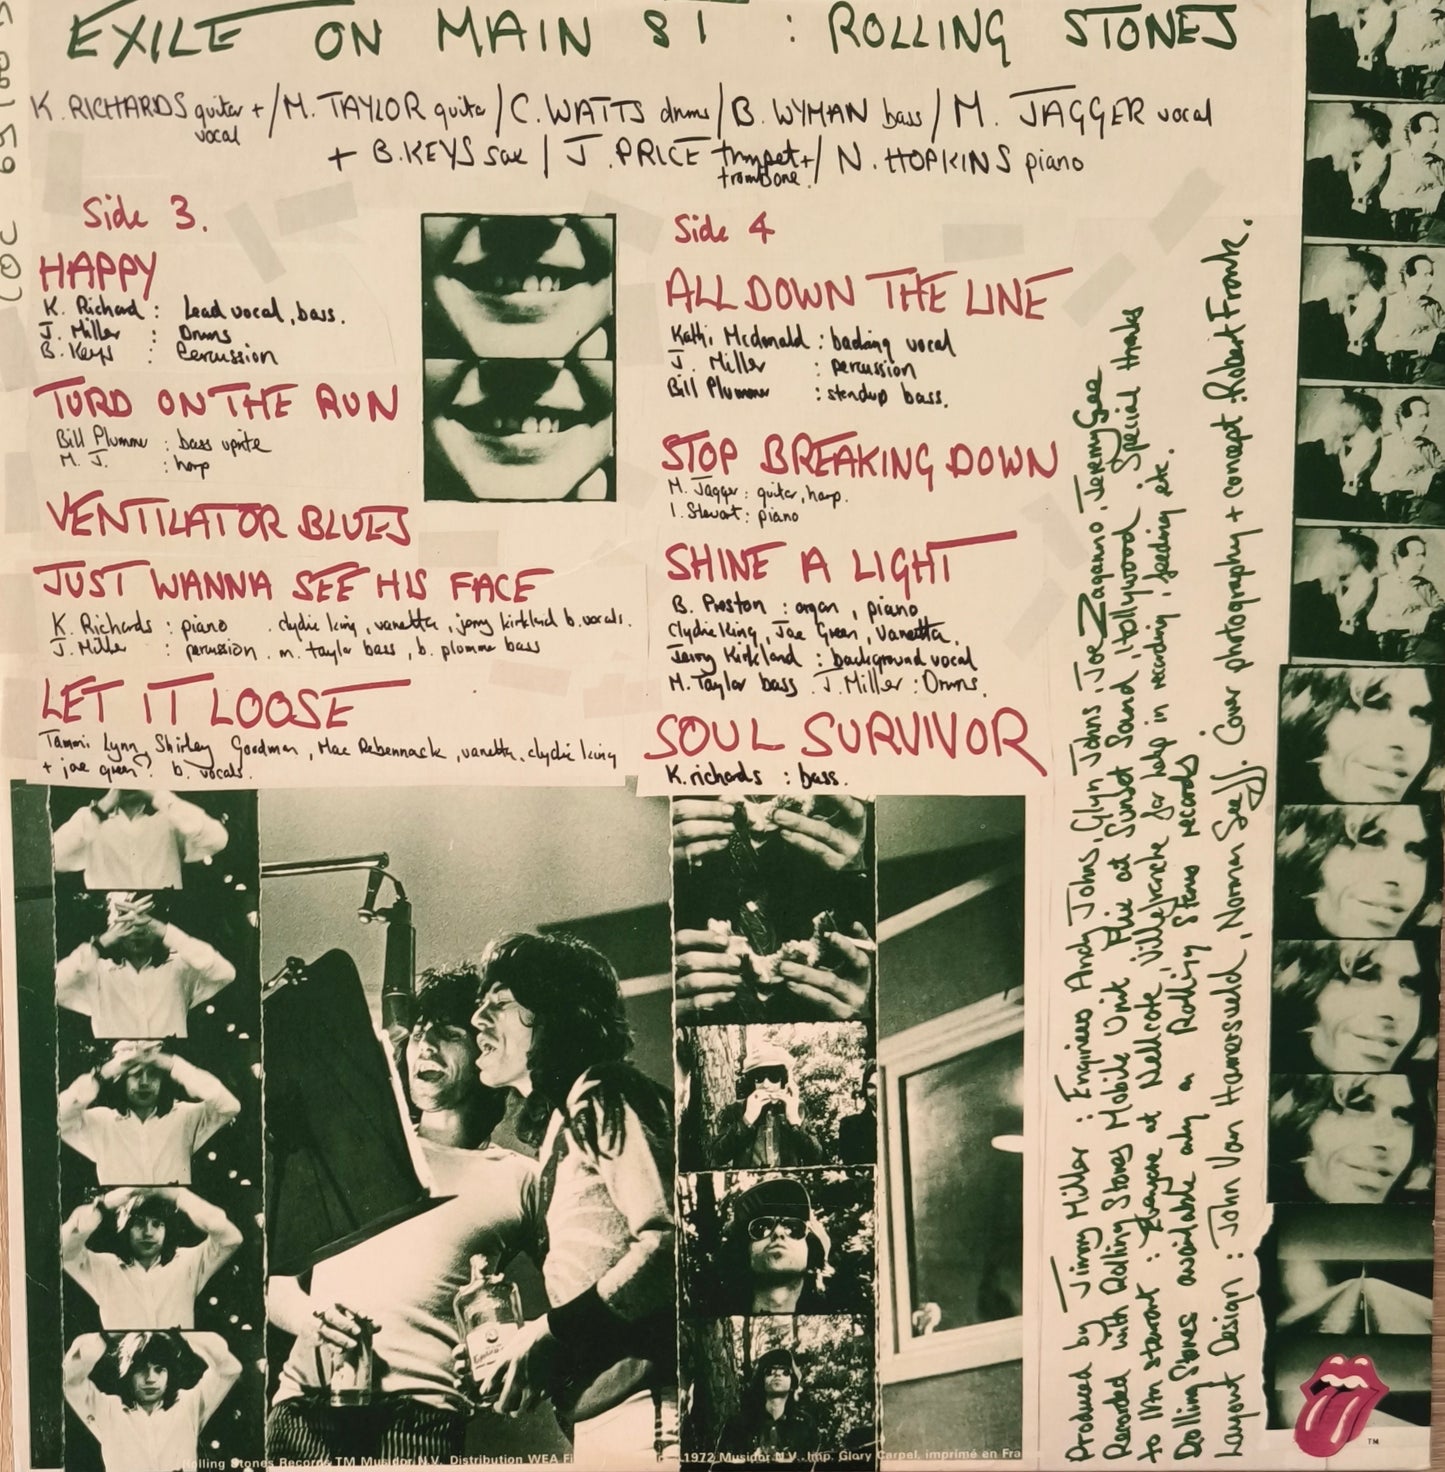 EXILE ON MAIN ST : ROLLING STONES
K. RICHARDS guitar + vocal / M. TAYLOR guitar / C. WATTS drums / B. WYMAN bass / M. JAGGER vocal
+ B. KEYS sax / J. PRICE trumpet + trombone. / N. HOPKINS piano
Side 3.
HAPPY
K. Richard : Lead vocal, bass.
J. Miller : Drums
B. Keys : Percussion
TURD ON THE RUN
Bill Plummer : bass uprite
M. J. : harp
VENTILATOR BLUES
JUST WANNA SEE HIS FACE
K. Richards : piano . clydie king, vanetta, jerry kirkland b. vocals.
J. Miller : percussion . m. taylor bass, b. plummer bass
LET IT LOOSE
Tammi Lynn, Shirley Goodman, Mac Rebennack, vanetta, clydie king
+ joe green : b. vocals.
Side 4
ALL DOWN THE LINE
Kathi Mcdonald : backing vocal
J. Miller : percussion
Bill Plummer : standup bass.
STOP BREAKING DOWN
M. Jagger : guitar, harp.
I. Stewart : piano
SHINE A LIGHT
B. Preston : organ, piano
Clydie King, Joe Green, Vanetta,
Jerry Kirkland : background vocal
M. Taylor bass. J. Miller : Drums.
SOUL SURVIVOR
K. richards : bass.
Produced by Jimmy Miller : Engineers Andy Johns, Glyn Johns, Joe Zaganno, Jeremy Gee
Recorded with Rolling Stones Mobile Unit Plus at Sunset Sound, Hollywood Special thanks
to Ian stewart : at Nellcote, Villefranche for help in recording, feeding etc.
Rolling Stones available only on Rolling Stones records
Layout Design : John Van Hamersveld, Norman Seeff. Cover photography + concept : Robert Frank.
COC 69100
Rolling Stones Records TM Musidor N.V. Distribution WEA Fi
1972 Musidor N.V. Imp. Glory Carpel, imprimé en Fra
TM